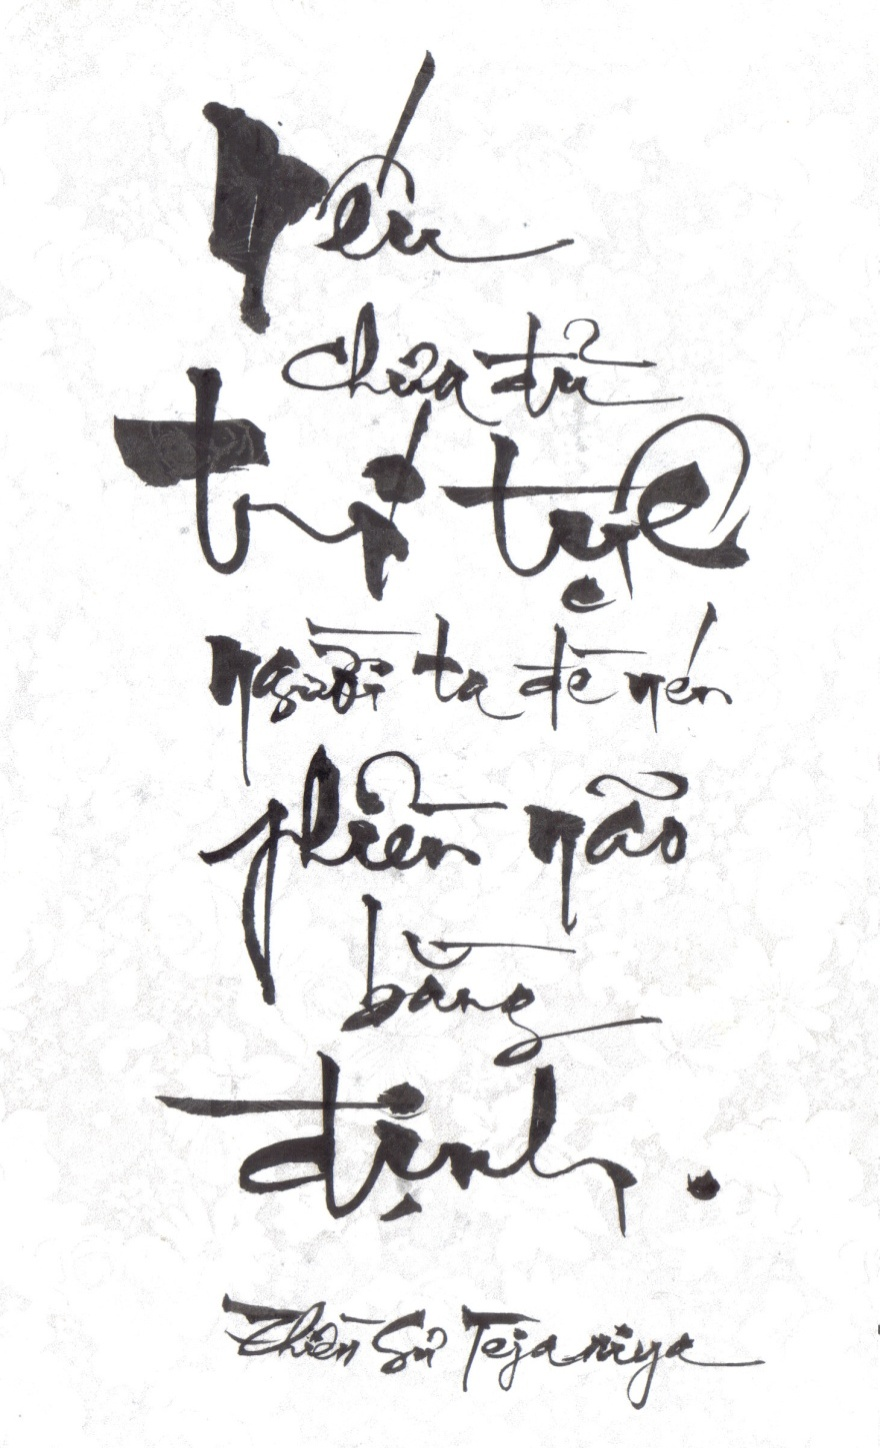 Nếu
chưa đủ
trí tuệ
người ta đè nén
phiền não
bằng
định.
Thiền Sư Tejaniya